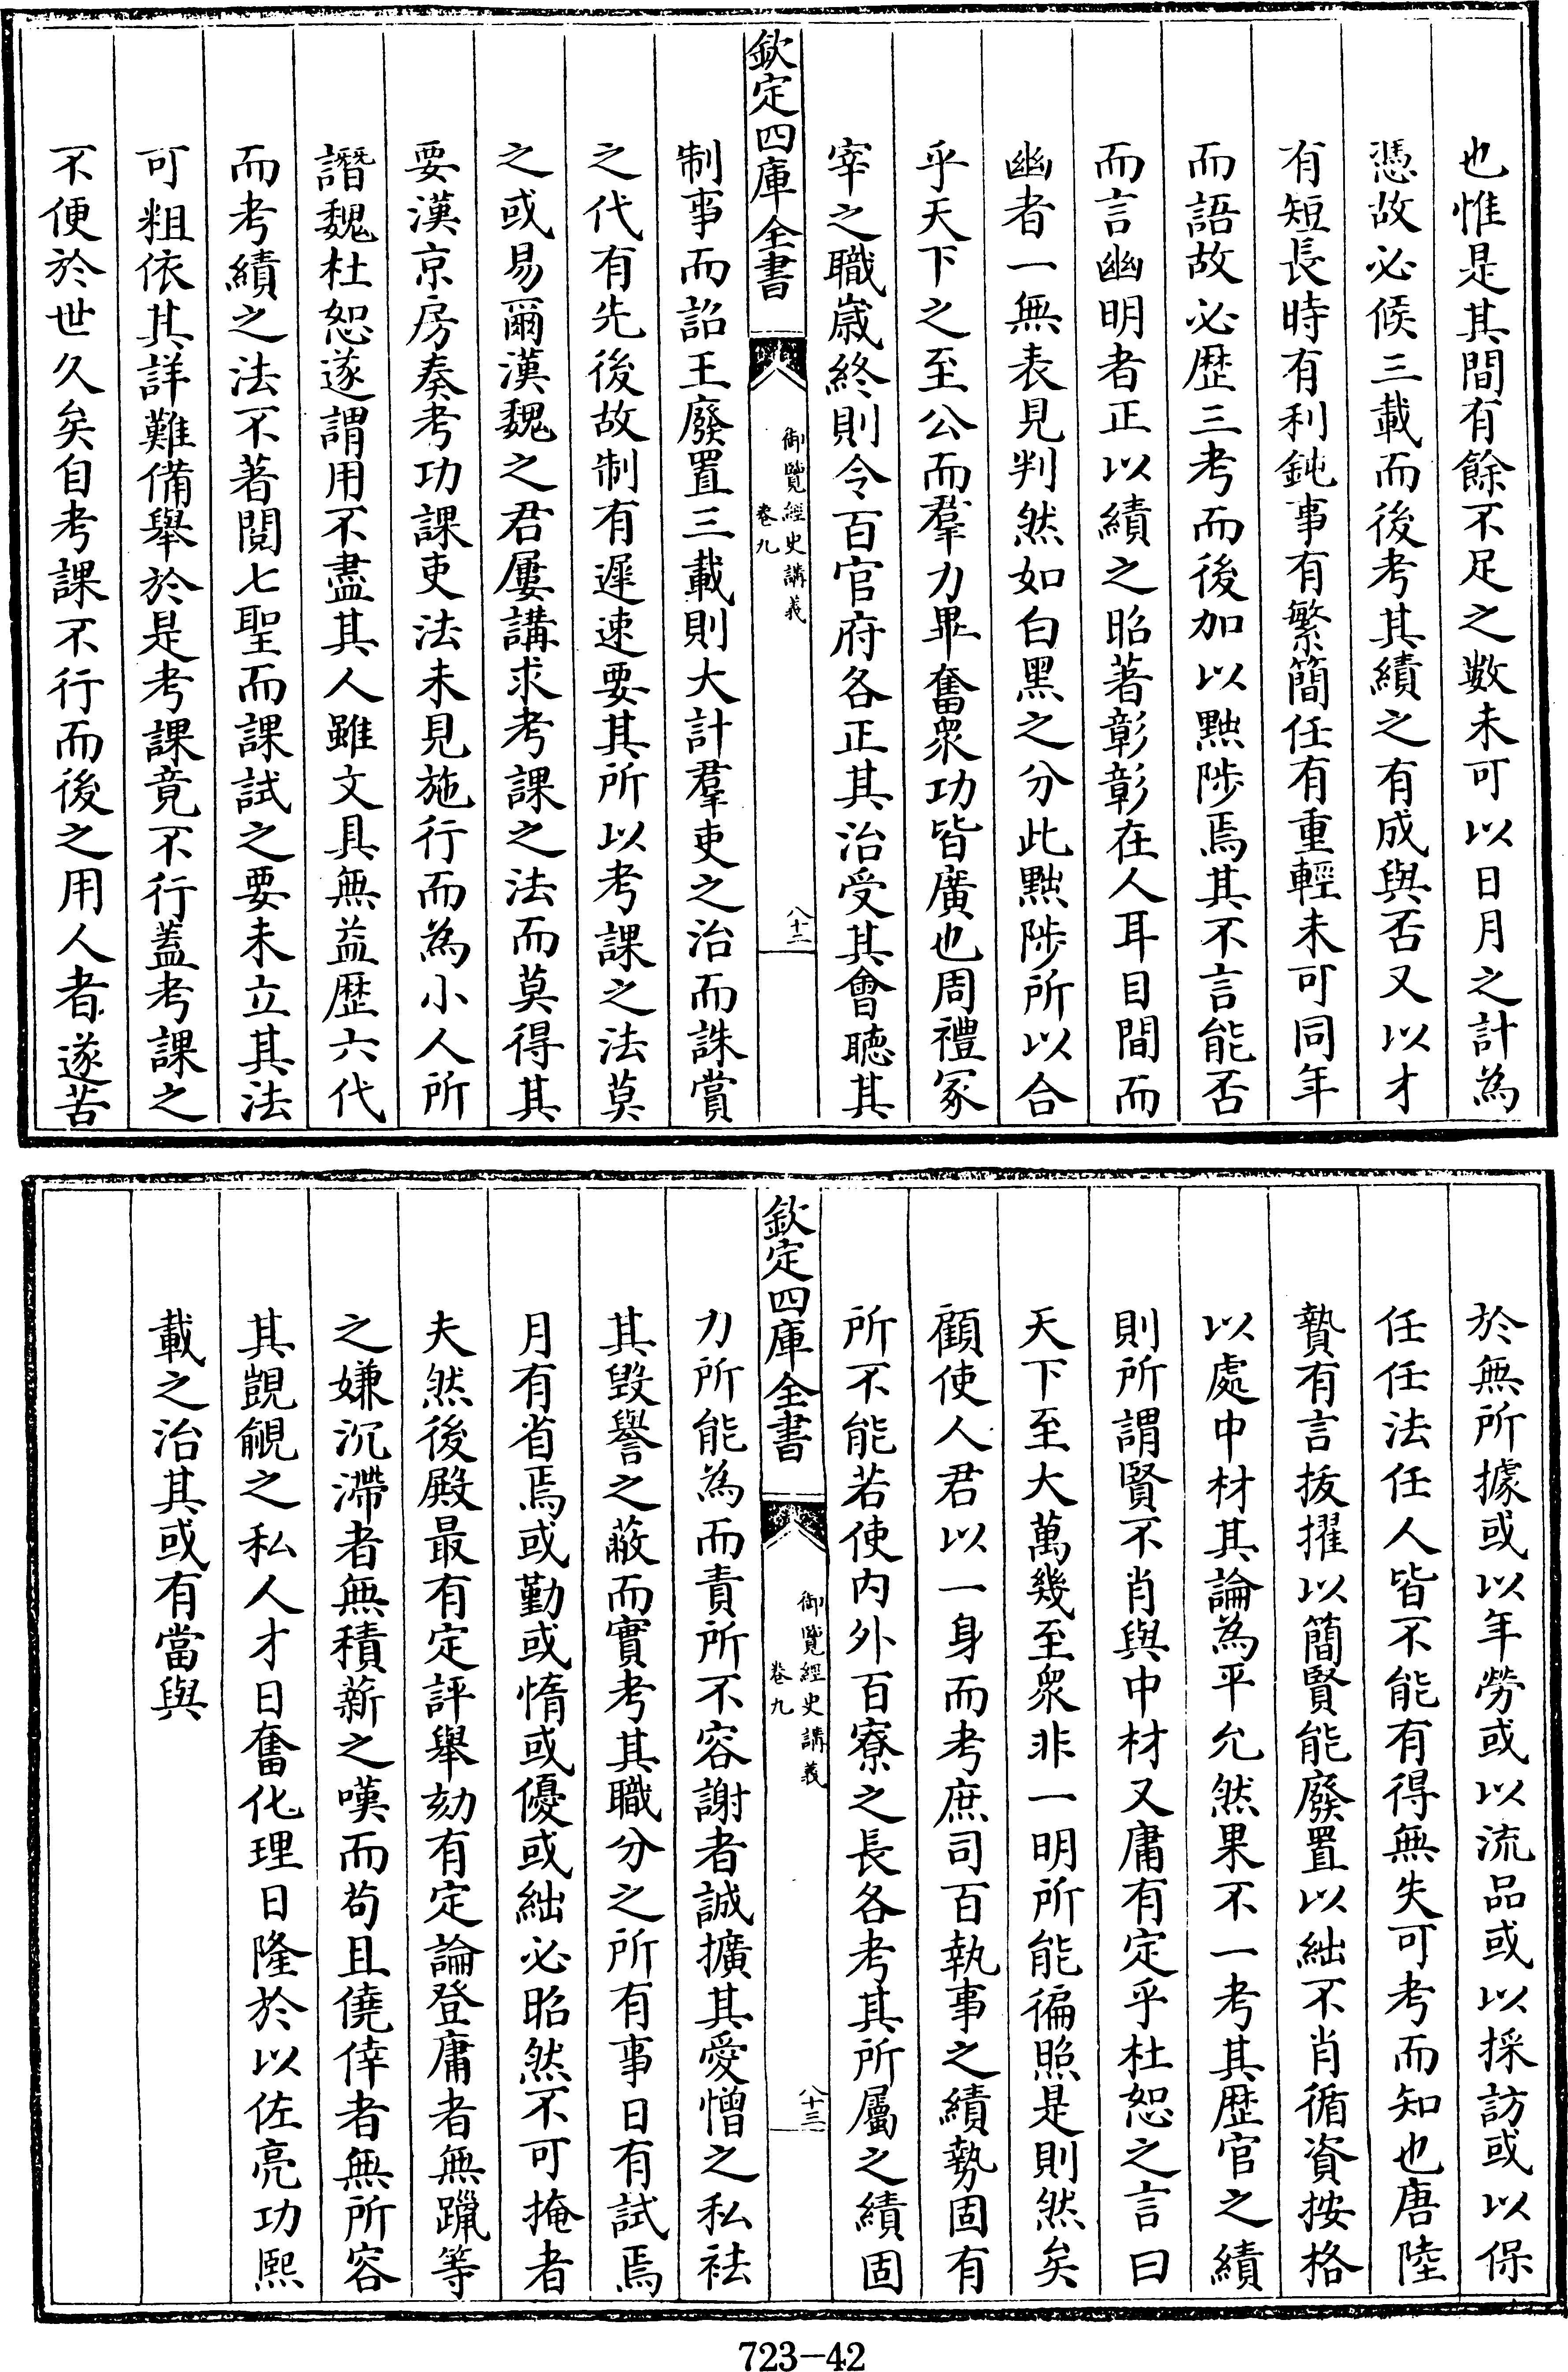 也惟是其間有餘不足之數未可以日月之計為
憑故必候三載而後考其績之有成與否又以才
有短長時有利鈍事有繁簡任有重輕未可同年
而語故必歴三考而後加以黜陟焉其不言能否
而言幽明者正以績之昭著彰彰在人耳目間而
幽者一無表見判然如白黑之分此黜陟所以合
乎天下之至公而羣力畢奮衆功皆廣也周禮冢
宰之職嵗終則令百官府各正其治受其會聽其
欽定四庫全書
御覽經史講義
卷九
八十二
制事而詔王廢置三載則大計羣吏之治而誅賞
之代有先後故制有遲速要其所以考課之法莫
之或易爾漢魏之君屢講求考課之法而莫得其
要漢京房奏考功課吏法未見施行而為小人所
譖魏杜恕遂謂用不盡其人雖文具無益歴六代
而考績之法不著閱七聖而課試之要未立其法
可粗依其詳難備舉於是考課竟不行蓋考課之
不便於世久矣自考課不行而後之用人者遂苦
於無所據或以年勞或以流品或以採訪或以保
任任法任人皆不能有得無失可考而知也唐陸
贄有言拔擢以簡賢能廢置以絀不肖循資按格
以處中材其論為平允然果不一考其歴官之績
則所謂賢不肖與中材又庸有定乎杜恕之言曰
天下至大萬幾至衆非一明所能徧照是則然矣
顧使人君以一身而考庶司百執事之績勢固有
所不能若使内外百寮之長各考其所屬之績固
欽定四庫全書
御覽經史講義
卷九
八十三
力所能為而責所不容謝者誠擴其愛憎之私袪
其毀譽之蔽而實考其職分之所有事日有試焉
月有省焉或勤或惰或優或絀必昭然不可掩者
夫然後殿最有定評舉劾有定論登庸者無躐等
之嫌沉滯者無積薪之嘆而苟且僥倖者無所容
其覬覦之私人才日奮化理日隆於以佐亮功熙
載之治其或有當與
723-42